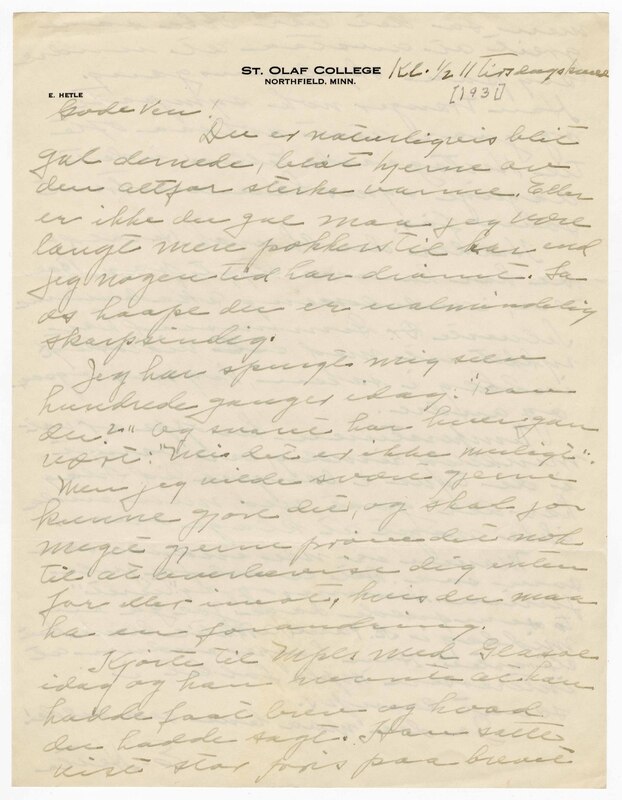 ST. OLAF COLLEGE Kl. 1/2 11 Tirsdagskveld
NORTHFIELD, MINN.
[1931]
E. HETLE
Gode Ven!
Du er naturligvis blit
gal dernede, bløt hjerne av
den altfor sterke varme. Eller
er ikke du gal maa jeg være
langt mere pokkers til kar end
jeg nogen tid har drømt. La
os haape du er ualmindelig
skarpsindig.
Jeg har spurgt mig selv
hundrede ganger idag: "Kan
du?" Og svaret har hver gan
vært: "Nei det er ikke muligt".
Men jeg vilde svært gjerne
kunne gjøre det, og skal for
meget gjerne prøve det nok
til at overbevise dig enten
for eller imot, hvis du maa
ha en forandring.
Kjørte til Mpls med Glasoe
idag og han nevnte at han
hadde faat brev og hvad
du hadde sagt. Han satte
vist stor pris paa brevet